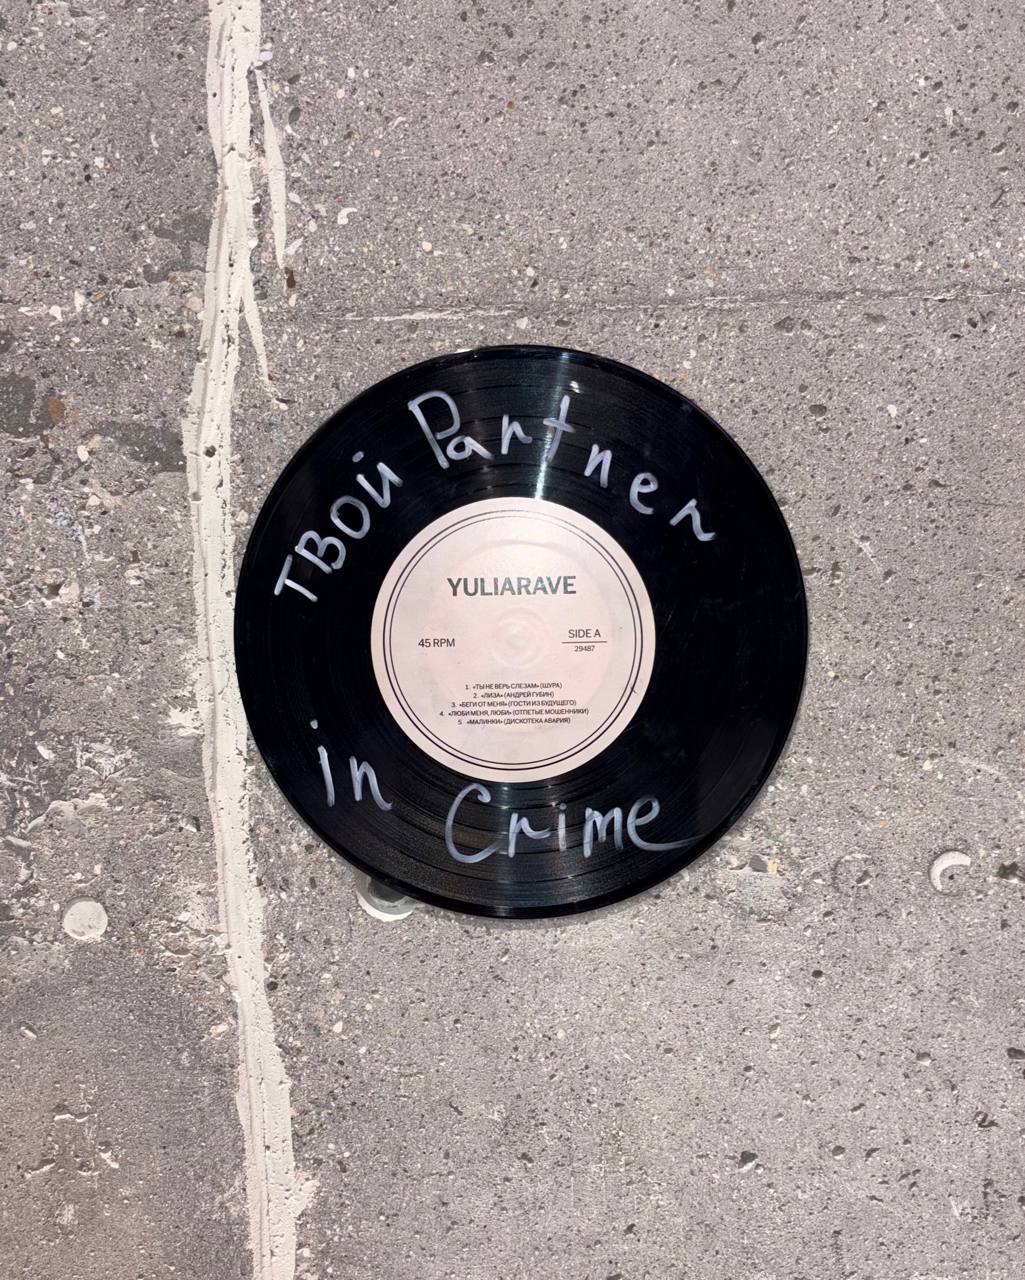 твой Partner
YULIARAVE
45 RPM
SIDE A
29487
1. «ТЫ НЕ ВЕРЬ СЛЕЗАМ» (ШУРА)
2. «ЛИЗА» (АНДРЕЙ ГУБИН)
3. «БЕГИ ОТ МЕНЯ» (ГОСТИ ИЗ БУДУЩЕГО)
4. «ЛЮБИ МЕНЯ, ЛЮБИ» (ОТПЕТЫЕ МОШЕННИКИ)
5 «МАЛИНКИ» (ДИСКОТЕКА АВАРИЯ)
in Crime